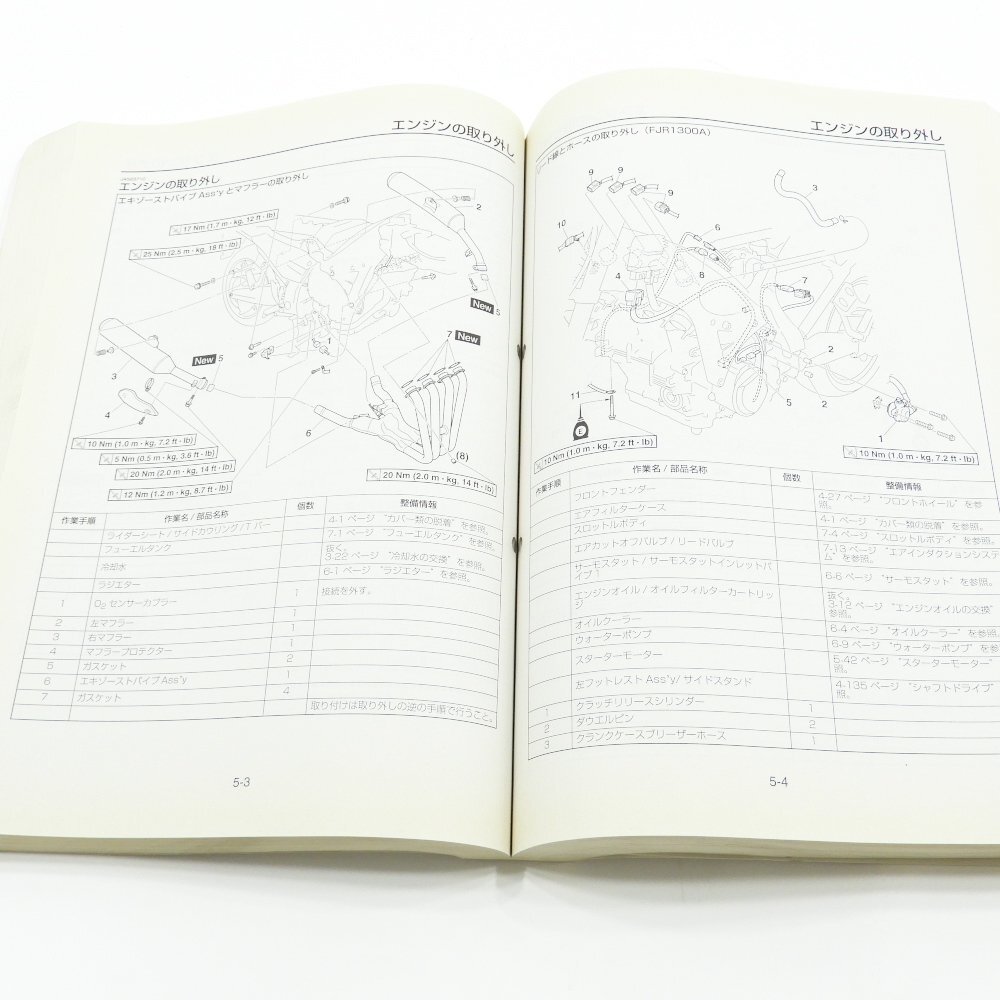 エンジンの取り外し
エンジンの取り外し
エキゾーストパイプ Ass'y とマフラーの取り外し
17 Nm (1.7 m・kg, 12 ft・lb)
25 Nm (2.5 m・kg, 18 ft・lb)
2
New 5
7 New
New 5
1
3
4
6
(8)
10 Nm (1.0 m・kg, 7.2 ft・lb)
5 Nm (0.5 m・kg, 3.6 ft・lb)
20 Nm (2.0 m・kg, 14 ft・lb)
12 Nm (1.2 m・kg, 8.7 ft・lb)
20 Nm (2.0 m・kg, 14 ft・lb)
作業手順 作業名 / 部品名称 個数 整備情報
ライダーシート / サイドカウリング / T バー 4-1 ページ “カバー類の脱着” を参照。
フューエルタンク 7-1 ページ “フューエルタンク” を参照。
冷却水 抜く。
3-22 ページ “冷却水の交換” を参照。
ラジエター 6-1 ページ “ラジエター” を参照。
1 O2 センサーカプラー 1 接続を外す。
2 左マフラー 1
3 右マフラー 1
4 マフラープロテクター 1
5 ガスケット 2
6 エキゾーストパイプ Ass'y 1
7 ガスケット 4
取り付けは取り外しの逆の手順で行うこと。
5-3
エンジンの取り外し
リード線とホースの取り外し (FJR1300A)
9
9
9
3
10
6
4
8
7
2
11
5
2
E
1
10 Nm (1.0 m・kg, 7.2 ft・lb)
10 Nm (1.0 m・kg, 7.2 ft・lb)
作業手順 作業名 / 部品名称 個数 整備情報
フロントフェンダー 4-27 ページ “フロントホイール” を参照。
エアフィルターケース 4-1 ページ “カバー類の脱着” を参照。
スロットルボディ 7-4 ページ “スロットルボディ” を参照。
エアカットオフバルブ / リードバルブ 7-13 ページ “エアインダクションシステム” を参照。
サーモスタット / サーモスタットインレットパイプ 1 6-6 ページ “サーモスタット” を参照。
エンジンオイル / オイルフィルターカートリッジ 抜く。
3-12 ページ “エンジンオイルの交換” 参照。
オイルクーラー 6-4 ページ “オイルクーラー” を参照。
ウォーターポンプ 6-9 ページ “ウォーターポンプ” を参照。
スターターモーター 5-42 ページ “スターターモーター” 照。
左フットレスト Ass'y / サイドスタンド 4-135 ページ “シャフトドライブ” 照。
1 クラッチリリースシリンダー 1
2 ダウエルピン 2
3 クランクケースブリーザーホース 1
5-4